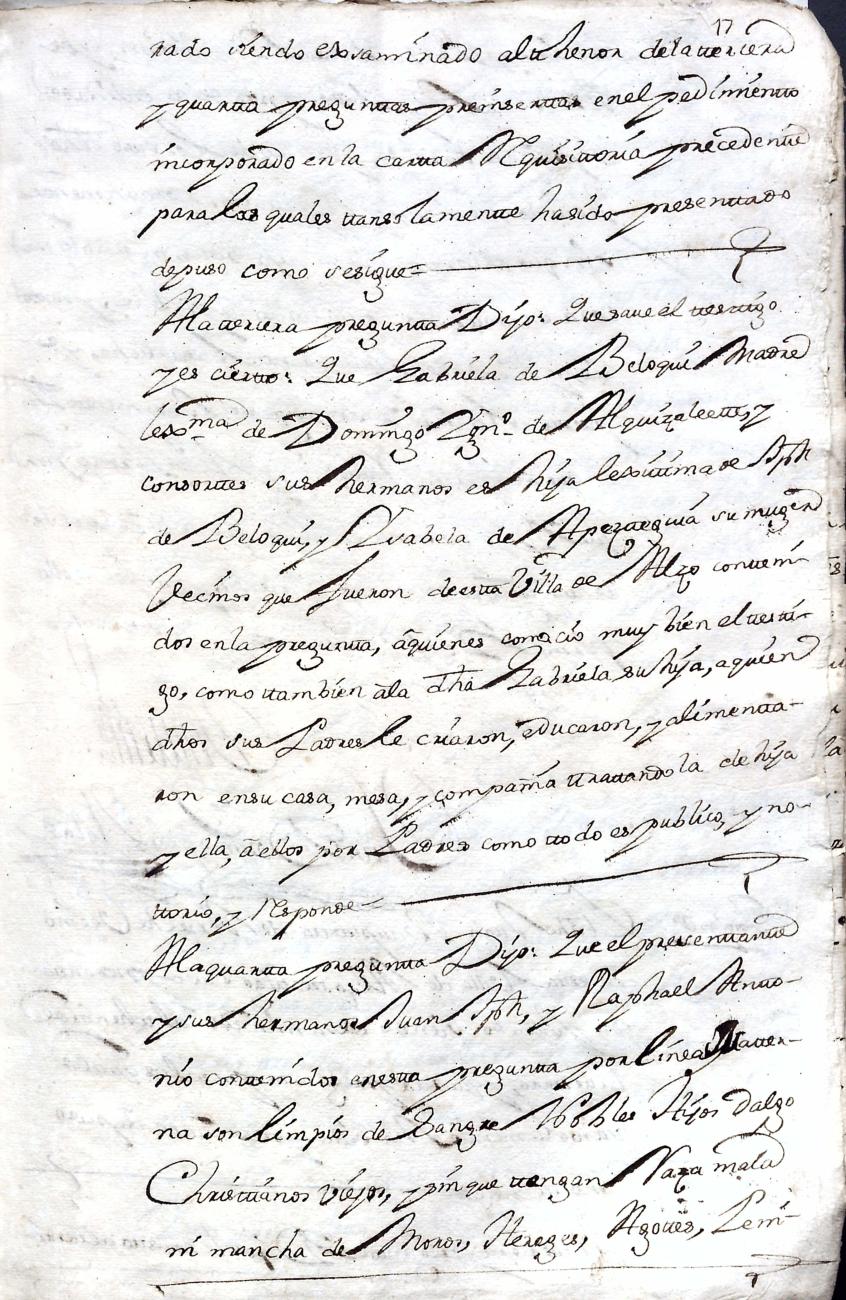 17
rado siendo exsaminado al thenor de la tercera
y quarta preguntas preinsertas en el pedimiento
incorporado en la carta Requisitoria precedente
para los quales tansolamente ha sido presentado
depuso como se sigue=
A la tercera pregunta Dijo: Que save el testigo
y es cierto: Que Gabriela de Beloqui Madre
lexma. de Domingo Igno. de Alquizalete, y
consortes sus hermanos es hija lexitima de Jph
de Beloqui, y Ysabela de Aperregui su muger
Vecinos que fueron de esta Villa de Alzo conteni-
dos en la pregunta, a quienes conocio muy bien el testi-
go, como tambien a la dha Gabriela su hija, a quien
dhos sus Padres le criaron, educaron, y alimenta-
ron en su casa, mesa, y compania ttratandola de hija
y ella, a ellos por Padres como todo es publico, y no-
torio, y Responde=
A la quarta pregunta Dijo: Que el presentante
y sus hermanos Juan Jph, y Raphael Anto-
nio contenidos en esta pregunta por linea Mater-
na son limpios de Sangre Nobles Hijos dalgo
Christianos viejos, y sin que tengan Raza mala
ni mancha de Moros, Hereges, Agotes, Peni-